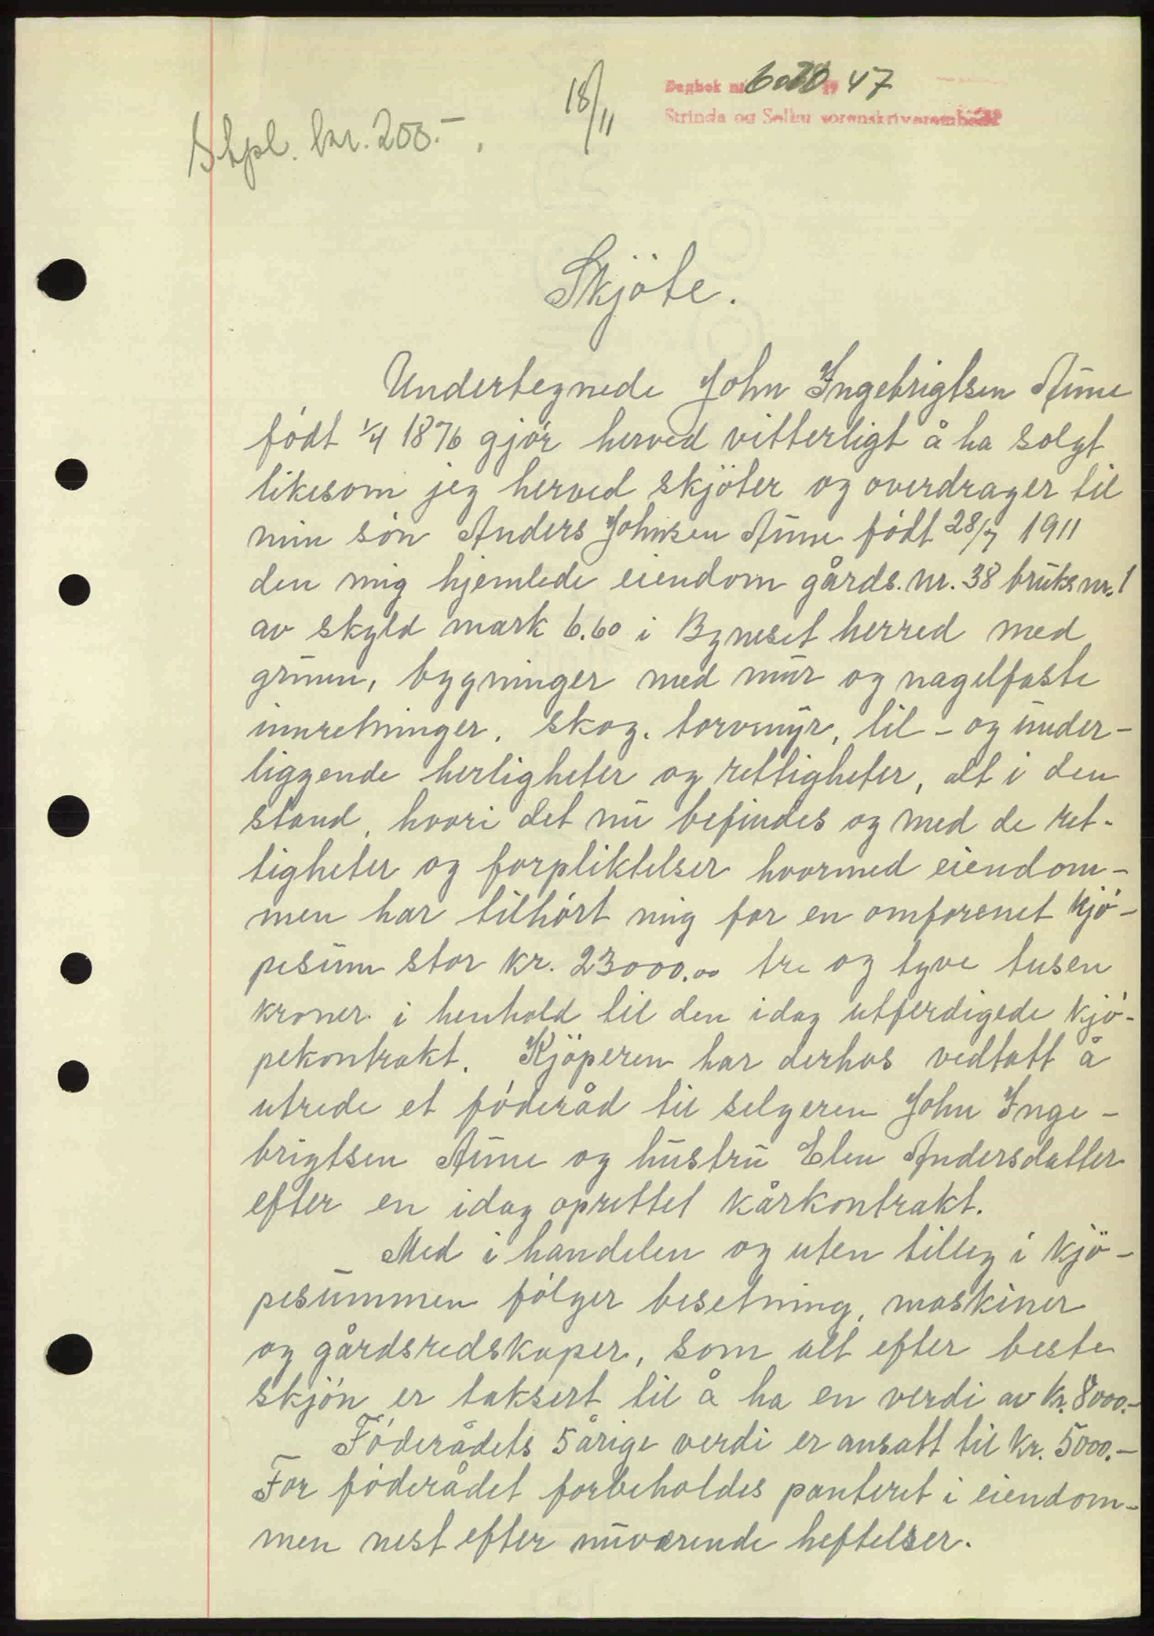 18/11
Dagbok nr. 19 47
Strinda og Selbu sorenskriverembede
Stpl. kr. 200.-.
Skjöte.
Undertegnede John Ingebrigtsen Aune
födt 1/4 1876 gjör herved vitterligt å ha solgt
likesom jeg herved skjöter og overdrager til
min sön Anders Johnsen Aune födt 28/7 1911
den mig hjemlede eiendom gårds.nr. 38 bruksnr. 1
av skyld mark 6.60 i Byneset herred med
grunn, bygninger med mur og nagelfaste
innretninger, skog, torvmyr, til- og under-
liggende herligheter og rettigheter, alt i den
stand, hvori det nu befindes og med de ret-
tigheter og forpliktelser hvormed eiendom-
men har tilhört mig for en omforenet kjö-
pesum stor kr. 23000.00 tre og tyve tusen
kroner i henhold til den idag utferdigede kjö-
pekontrakt. Kjöperen har derhos vedtatt å
utrede et föderåd til selgeren John Inge-
brigtsen Aune og hustru Elen Andersdatter
efter en idag oprettet kårkontrakt.
Med i handelen og uten tilleg i kjö-
pesummen fölger besetning, maskiner
og gårdsredskaper, som alt efter beste
skjön er taksert til å ha en verdi av kr. 8000.-
Föderådets 5 årige verdi er ansatt til kr. 5000.-
For föderådet forbeholdes panteret i eiendom-
men nest efter nuværende heftelser.